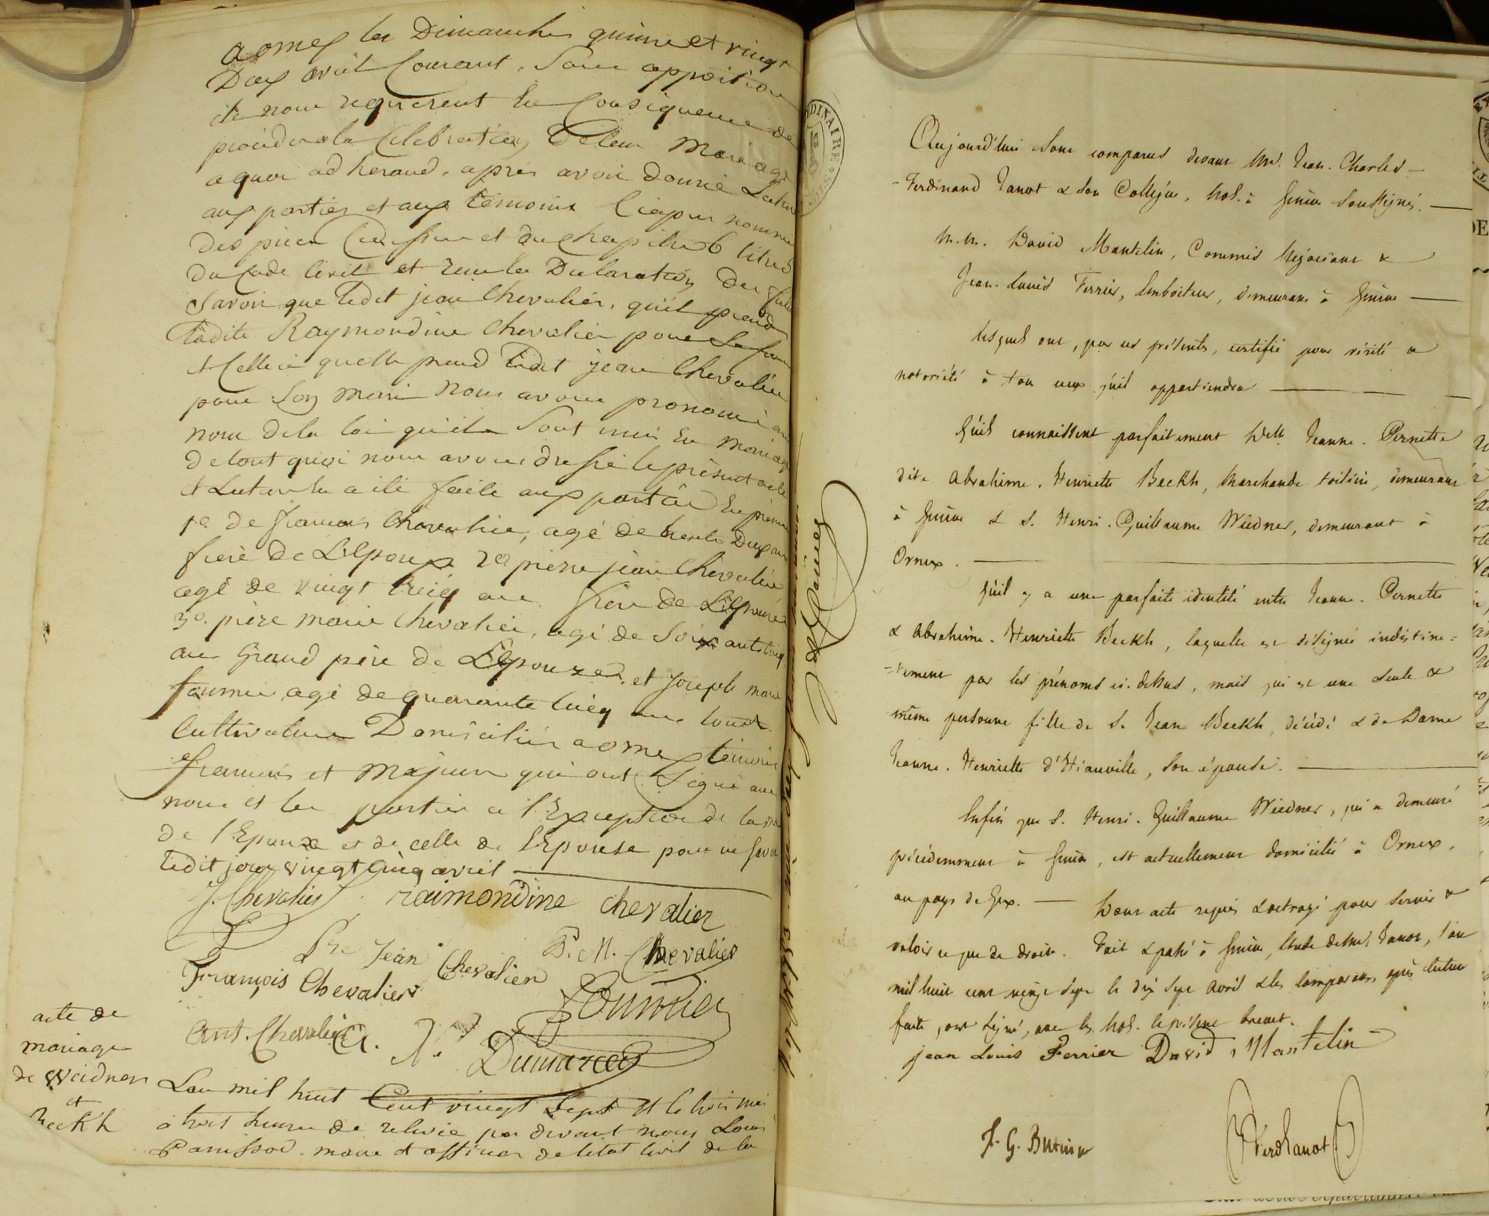 a ornex les Dimanches quinze et vingt
Deux avril Courant, Sans opposition
ils nous requierent En Consequence de
proceder a la Celebration De leur Mariage
a quoi adherant, apres avoir donné Lecture
aux parties et aux temoins Ci apres nommés
des pieces Ci dessus et du Chapitre 6 titre 5
du Code Civil et recu les Declarations
Savoir que Ledit jean Chevalier, qu'il prend
Ladite Raymondine Chevalier pour Sa femme
et Celle ci quelle prend Ledit jean Chevalier
pour Son Mari Nous avons prononcé au
nom de la loi qu'ils Sont unis En Mariage
de tout quoi nous avons dressé le présent acte
et Lecture En a été faite aux parties En presence
1º de françois Chevalier, agé de trente Deux ans
frere De L'Epoux 2º pierre jean Chevalier
agé de vingt cinq ans frere de L'Epouse
3º. pierre marie Chevalier, agé de Soixante cinq
ans Grand père de L'Epouze. et joseph marie
fournier, agé de quarante Cinq ans tous
Cultivateurs Domiciliés a ornex temoins
francais et Majeurs qui ont Signé avec
nous et les parties a l'Exception de la mere
de l'Epoux et de celle de l'Epouse pour ne savoir
Ledit jour vingt Cinq avril
J. Chevalier raimondine chevalier
Pre Jean Chevalier P. M. Chevalier
François Chevalier Fournier
Ant. Chevalier
acte de
mariage
de Weidner
et
Beckh
L'an mil huit Cent vingt Sept et le trois mai
à trois heures de relevée par devant nous Louis
Panissod maire et officier de l'état Civil de la
Aujourd'hui sont comparus devant Me. Jean-Charles-
-Ferdinand Janot & Son Collègue, Not. à Genève Soussignés.
M.M. David Mantelin, Commis Négociant &
Jean-Louis Ferrier, Emboiteur, demeurans à Genève
Lesquels ont, par ces présentes, certifié pour vérité &
notoriété à tous ceux qu'il appartiendra
Qu'ils connaissent parfaitement Delle Jeanne-Pernette
dite Abrahime-Henriette Beckh, Marchande toilière, demeurant
à Genève & S. Henri-Guillaume Wiedner, demeurant à
Ornex.
Qu'il y a une parfaite identité entre Jeanne-Pernette
& Abrahime-Henriette Beckh, laquelle est désignée indistinc=
=tement par les prénoms ci-dessus, mais qui est une seule &
même personne fille de S. Jean Beckh, décédé & de Dame
Jeanne-Henriette d'Hianville, Son épouse.
Enfin que S. Henri-Guillaume Wiedner, qui a demeuré
précédemment à Genève, est actuellement domicilié à Ornex,
au pays de Gex. Dont acte requis & octroyé pour servir &
valoir ce que de droit. Fait & passé à Genève, Etude dudit Janot, l'an
mil huit cent vingt sept le dix sept avril & les comparans après lecture
faite, ont signé, avec les Not. le présent brevet.
jean Louis Ferrier David Mantelin
J. G. Butin